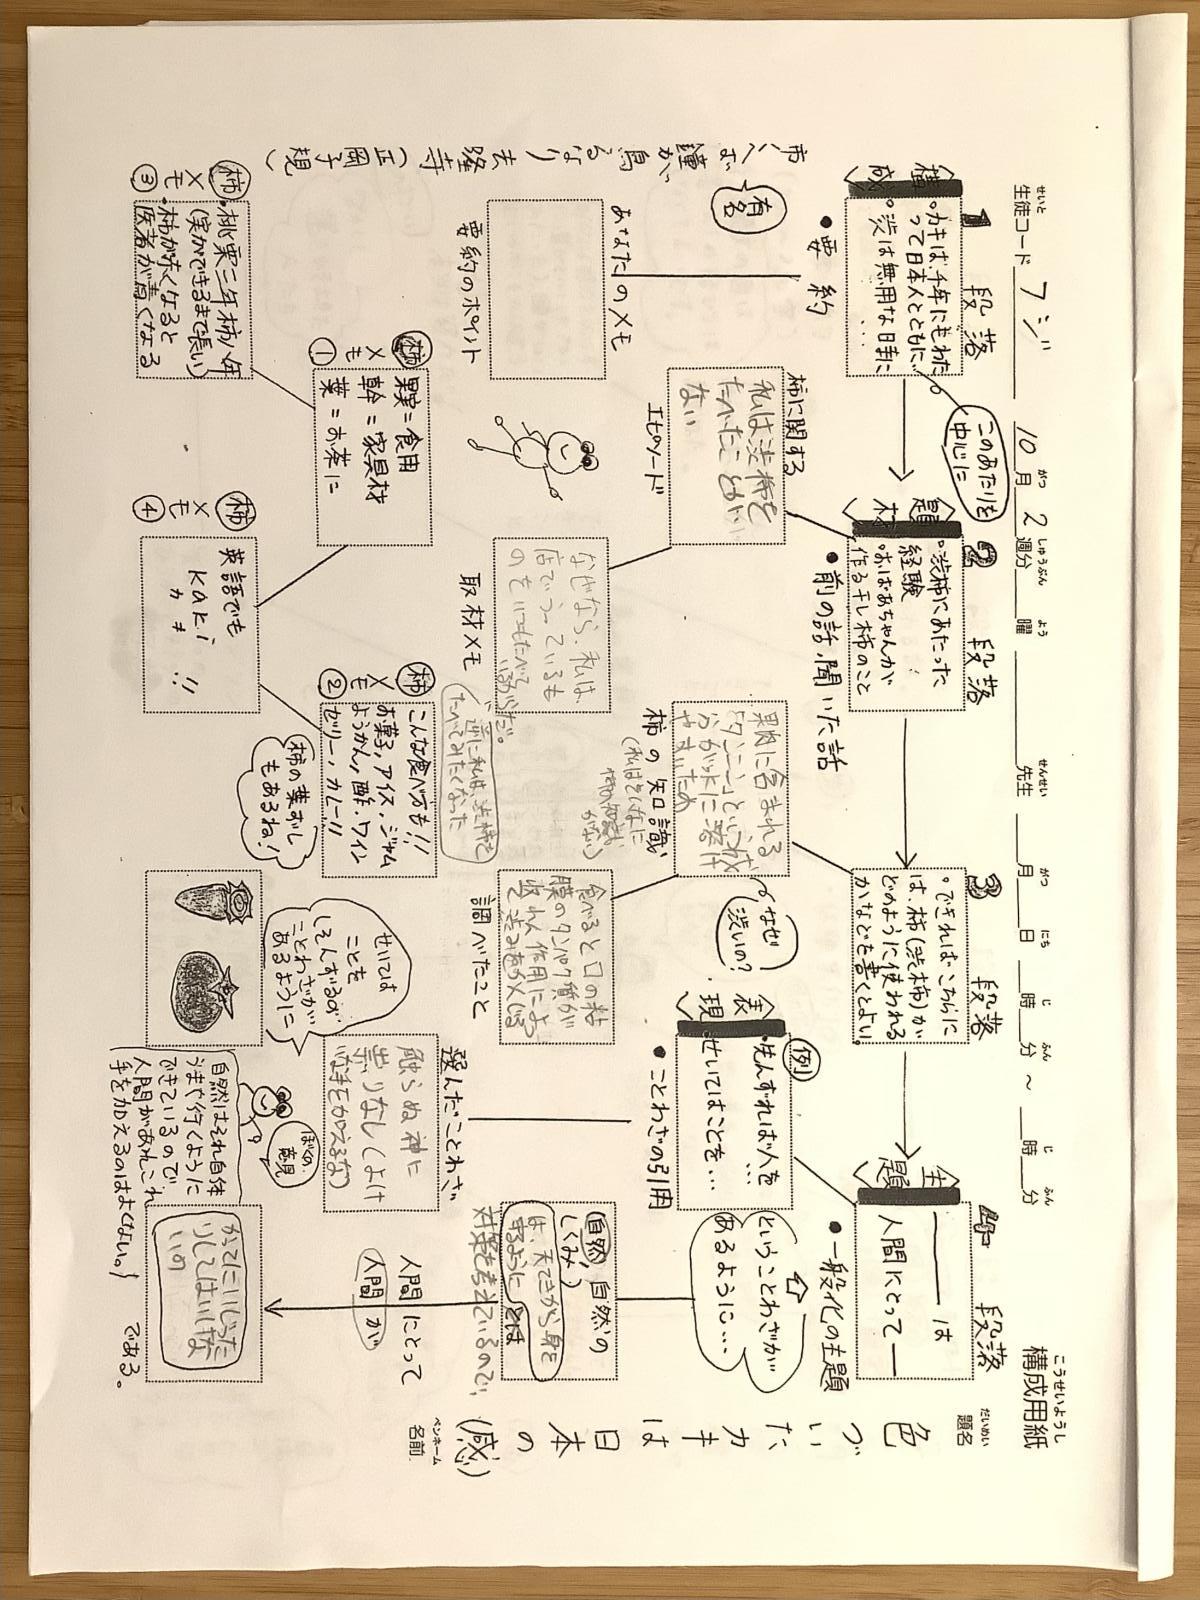 構成用紙
こうせいようし
生徒コード フジ 10月2週分 曜 先生 月 日 時 分 ～ 時 分
せいと がつ しゅうぶん よう せんせい がつ にち じ ふん じ ふん
題名
だいめい
色づいたカキは日本の(感)
名前
ペンネーム
1 段落
〈構成〉
・カキは、千年にもわた
って日本人とともに…
・渋は無用な時に
…
●要約
このあたりを
中心に
2 段落
〈題材〉
・渋柿にあたった
経験
・おばあちゃんが
作る干し柿のこと
●前の話、聞いた話
3 段落
・できればこちらに
は、柿(渋柿)が
どのように使われる
かなどを書くとよい。
4 段落
〈主題〉
――は
人間にとって―
●一般化の主題
あなたのメモ
要約のポイント
有名
柿くへば鐘が鳴るなり法隆寺(正岡子規)
柿に関する
私は渋柿を
たべたことが
ない
エピソード
なぜなら、私は、
店でうっているも
のをいつもたべて
いるからだ。
逆に私は渋柿を
たべてみたくなった
取材メモ
果肉に含まれる
「タンニン」という成
分が水に溶け
やすいため
柿の知識
(私はそんなに
柿の知識が
がない)
なぜ
渋いの？
食べると口の粘
膜のタンパク質が
収れん作用によっ
て渋みをかんじる
調べたこと
〈表現〉
例
・先んずれば人を
…
・せいてはことを…
●ことわざの引用
ということわざが
あるように…
選んだことわざ
触らぬ神に
祟りなし(よけ
いな手を加えるな)
せいては
ことを
しそんずるが
ことわざが
あるように
自然、自然の
しくみ
は、天てきから身を
守るように
対策を考えているので、
人間にとって
人間が
かってにいじった
りしてはいけな
いの
である。
ぼくの
意見
自然はそれ自体
うまく行くように
できているので
人間があれこれ
手を加えるのはよくない。
柿メモ①
果実＝食用
幹＝家具材
葉＝お茶に
柿メモ②
こんな食べ方も!!
お菓子,アイス,ジャム
ようかん,酢,ワイン
ゼリー,カレー!!
柿の葉ずし
もあるね！
柿メモ③
・桃栗三年柿八年
(実ができるまで長い)
・柿が赤くなると
医者が青くなる
柿メモ④
英語でも
kaki
カキ !!